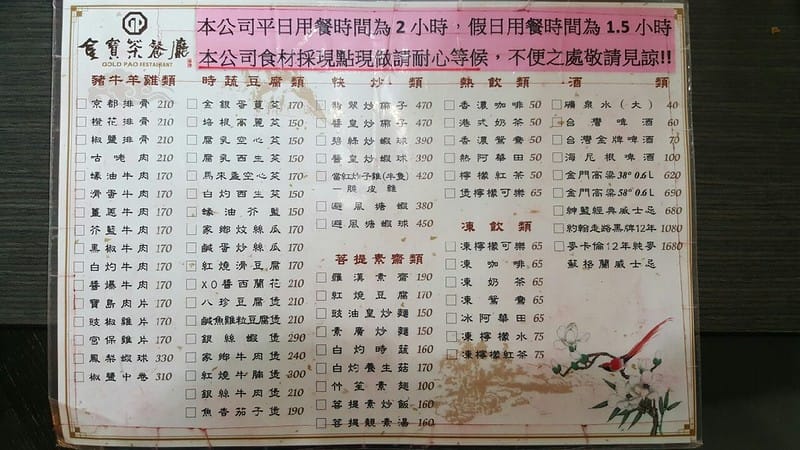 金寶篆餐廳
GOLD PAO RESTAURANT
本公司平日用餐時間為2小時，假日用餐時間為1.5小時
本公司食材採現點現做請耐心等候，不便之處敬請見諒!!
豬牛羊雞類
京都排骨 210
橙花排骨 210
椒鹽排骨 210
咕咾肉 210
蠔油牛肉 170
滑蛋牛肉 170
薑蔥牛肉 170
芥藍牛肉 170
黑椒牛肉 170
白灼牛肉 170
醬爆牛肉 170
寶島肉片 170
豉椒雞片 170
宮保雞片 170
鳳梨蝦球 330
椒鹽中卷 310
時蔬豆腐類
金銀蛋莧菜 170
培根高麗菜 150
腐乳空心菜 150
腐乳西生菜 150
馬來盞空心菜 170
白灼西生菜 150
蠔油芥藍 150
家鄉炆絲瓜 170
鹹蛋炒絲瓜 170
紅燒滑豆腐 170
XO醬西蘭花 210
八珍豆腐煲 210
鹹魚雞粒豆腐煲 210
銀絲蝦煲 290
家鄉牛肉煲 240
紅燒牛腩煲 300
銀絲牛肉煲 210
魚香茄子煲 190
快炒類
翡翠炒帶子 470
醬皇炒帶子 470
碧綠炒蝦球 390
醬皇炒蝦球 390
當紅炸子雞(半隻) 420
一脆皮雞
避風塘蝦 380
避風塘蝦球 450
菩提素齋類
羅漢素齋 190
紅燒豆腐 170
豉油皇炒麵 150
素廣炒麵 150
白灼時蔬 160
白灼養生菇 170
什笙素麵 100
菩提素炒飯 160
菩提靚素湯 160
熱飲類
香濃咖啡 50
港式奶茶 50
香濃鴛鴦 50
熱阿華田 50
檸檬紅茶 50
煲檸檬可樂 65
凍飲類
凍檸檬可樂 65
凍咖啡 65
凍奶茶 65
凍鴛鴦 65
冰阿華田 65
凍檸檬水 75
凍檸檬紅茶 75
酒類
礦泉水(大) 40
台灣啤酒 60
台灣金牌啤酒 70
海尼根啤酒 100
金門高粱38° 0.6L 620
金門高粱58° 0.6L 690
紳藍經典威士忌 680
約翰走路黑牌12年 1080
麥卡倫12年純麥 1680
蘇格蘭威士忌